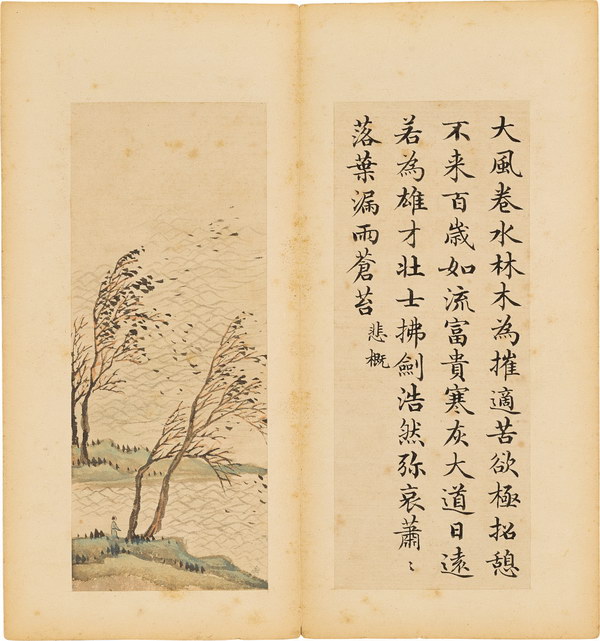 大風卷水林木為摧適苦欲極招憩
不来百歳如流富貴寒灰大道日遠
若為雄才壯士拂劍浩然弥哀蕭〻
落葉漏雨蒼苔
悲概